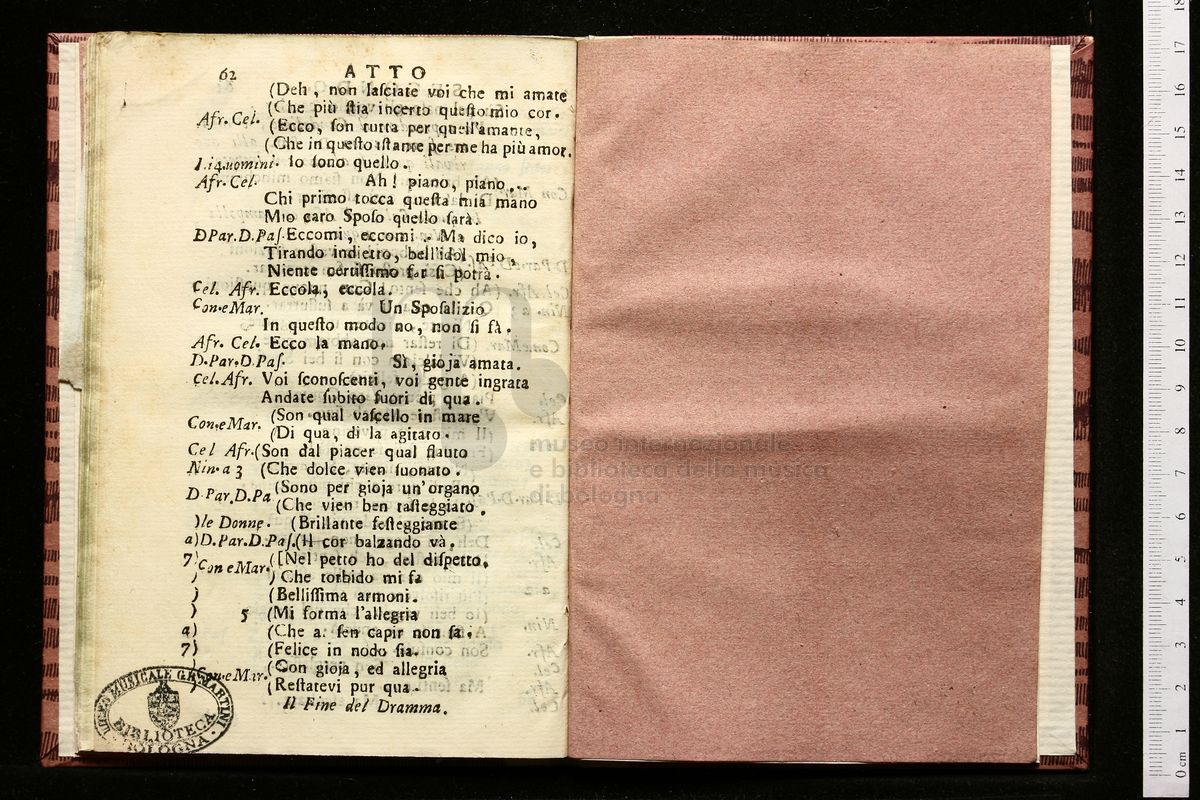 62 ATTO
(Deh, non laſciate voi che mi amate
(Che più ſtia incerto queſto mio cor.
Afr. Cel.
(Ecco, ſon tutta per quell'amante,
(Che in queſto iſtante per me ha più amor.
I.i4.uomini. Io ſono quello.
Afr. Cel. Ah! piano, piano...
Chi primo tocca queſta mia mano
Mio caro Spoſo quello ſarà.
D Par. D. Paſ. Eccomi, eccomi.. Ma dico io,
Tirando indietro, bell'idol mio,
Niente certiſſimo far ſi potrà.
Cel. Afr. Eccola, eccola.
Con e Mar. Un Spoſalizio
In queſto modo no, non ſi fà.
Afr. Cel. Ecco la mano.
D. Par. D. Paſ. Sì, gioja amata.
Cel. Afr. Voi ſconoſcenti, voi gente ingrata
Andate ſubito fuori di qua.
(Son qual vaſcello in mare
Con.e Mar.
(Di qua, di la agitato.
Cel Afr. (Son dal piacer qual flauto
Nin. a 3 (Che dolce vien ſuonato.
(Sono per gioja un'organo
D Par. D. Pa
(Che vien ben taſteggiato.
)le Donne. (Brillante feſteggiante
a)D. Par. D. Paſ. (Il cor balzando và.
7) ([Nel petto ho del diſpetto,
Con e Mar.
) ) Che torbido mi fa
) (Belliſſima armoni.
) 5 (Mi forma l'allegria
a) (Che a. ſen capir non ſa.
7) (Felice in nodo ſia.
) (Con gioja, ed allegria
Con.e Mar.
) (Reſtatevi pur qua.
Il Fine del Dramma.
LICEO MUSICALE G.B. MARTINI
BIBLIOTECA
BOLOGNA
museo internazionale
e biblioteca della musica
di bologna
0 cm 1 2 3 4 5 6 7 8 9 10 11 12 13 14 15 16 17 18